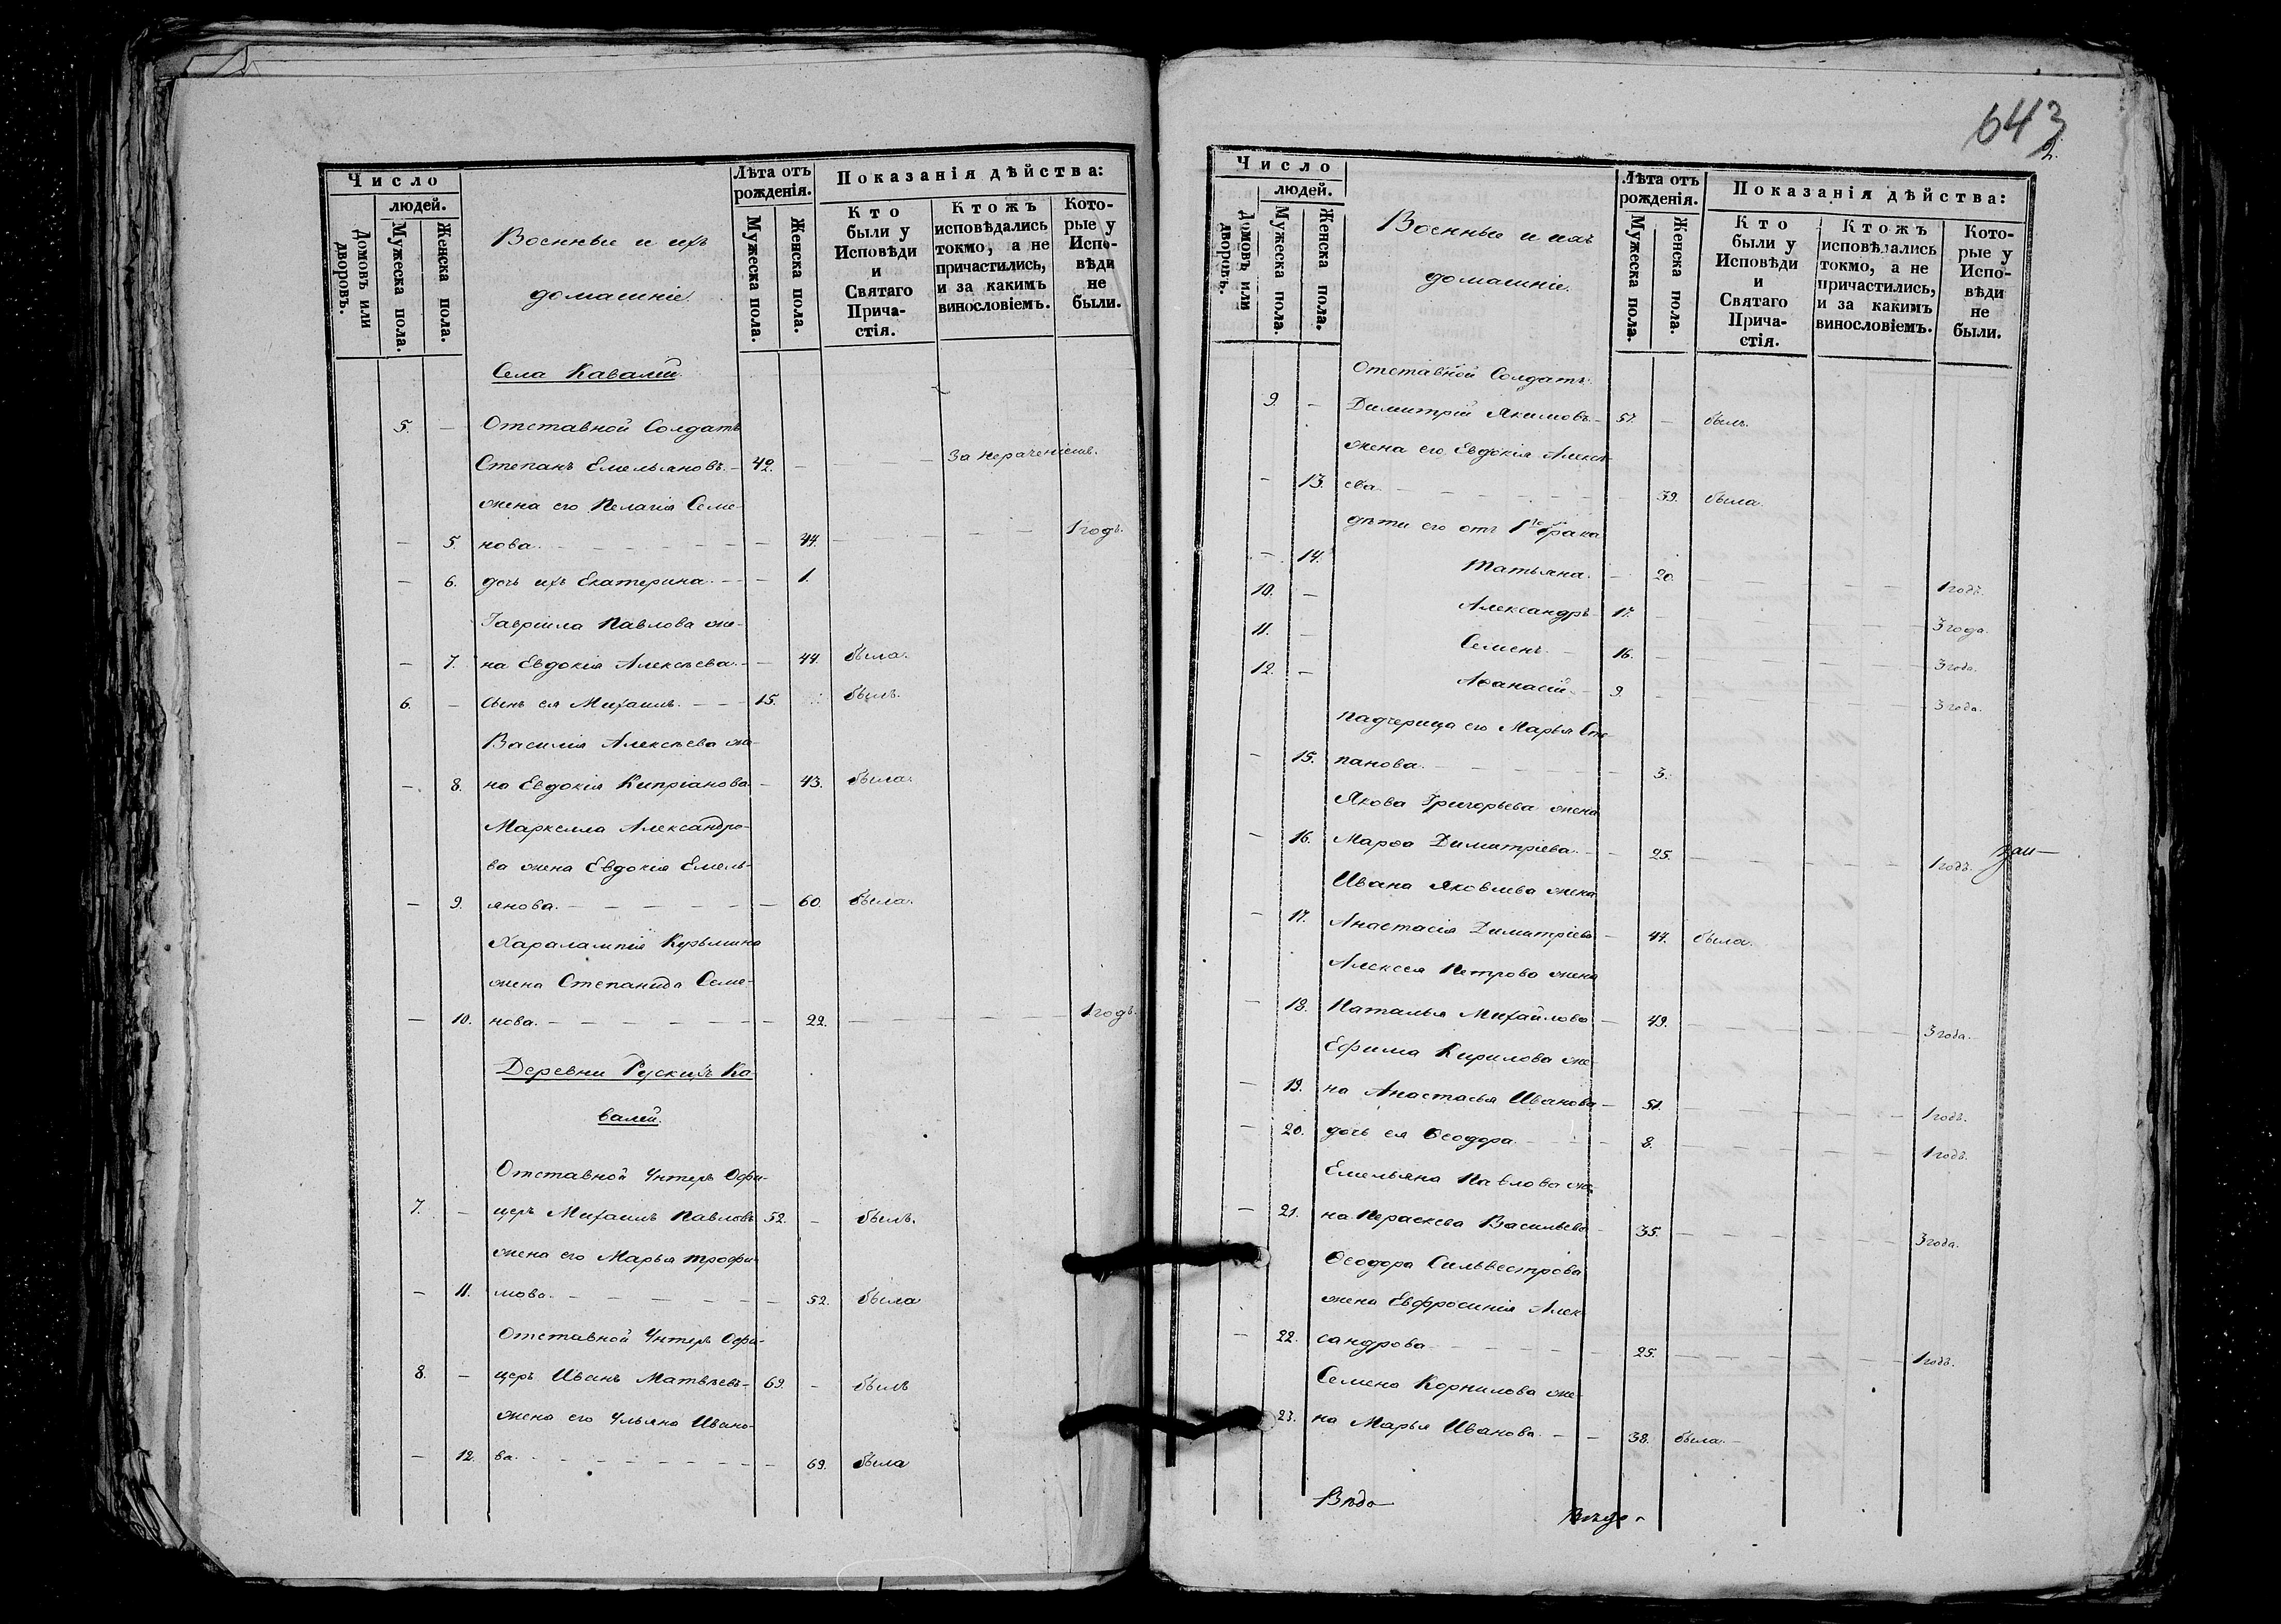 Число
людей.
Домовъ или дворовъ.
Мужеска пола.
Женска пола.
Военные и ихъ
домашніе.
Лѣта отъ
рожденія.
Мужеска пола.
Женска пола.
Показанія дѣйства:
Кто
были у
Исповѣди
и
Святаго
Прича-
стія.
Ктожъ
исповѣдались
токмо, а не
причастились,
и за какимъ
винословіемъ.
Кото-
рые у
Испо-
вѣди
не
были.
Села Кавалей.
5. — Отставной Солдатъ
Степанъ Емельяновъ. — 42. — за нераченіемъ.
жена его Пелагія Семе-
— 5. нова. — 44. — 1 годъ.
— 6. дочь ихъ Екатерина. — 1.
Гавріила Павлова же-
— 7. на Евдокія Алексѣева. — 44. была.
6. — сынъ ея Михаилъ. — 15. былъ.
Василія Алексѣева же-
— 8. на Евдокія Кипріанова. — 43. была.
Маркелла Александро-
ва жена Евдокія Емель-
— 9. янова. — 60. была.
Харалампія Кузьмина
жена Степанида Семе-
— 10. нова. — 22. — 1 годъ.
Деревни Рускихъ Ка-
валей.
Отставной Унтеръ Офи-
7. — церъ Михаилъ Павловъ 52. — былъ.
жена его Марья Трофи-
— 11. мова. — 52. была
Отставной Унтеръ Офи-
8. — церъ Иванъ Матвѣевъ — 69. — былъ
жена его Ульяна Ивано-
— 12. ва. — 69. была
643
Число
людей.
Домовъ или дворовъ.
Мужеска пола.
Женска пола.
Военные и ихъ
домашніе.
Лѣта отъ
рожденія.
Мужеска пола.
Женска пола.
Показанія дѣйства:
Кто
были у
Исповѣди
и
Святаго
Прича-
стія.
Ктожъ
исповѣдались
токмо, а не
причастились,
и за какимъ
винословіемъ.
Кото-
рые у
Испо-
вѣди
не
были.
Отставной Солдатъ
9. — Димитрій Якимовъ. — 57. — былъ.
жена его Евдокія Алексѣ-
— 13. ева. — 39. была.
дѣти его отъ 1го брака
— 14. Татьяна. — 20. — 1 годъ.
10. — Александръ 17. — 3 года.
11. — Семенъ. — 16. — 3 года.
12. — Аѳанасій. — 9. — 3 года.
падчерица его Марья Сте-
— 15. панова. — 3.
Якова Григорьева жена
— 16. Марѳа Димитріева. — 25. — 1 годъ.
Ивана Яковлева жена
— 17. Анастасія Димитріева — 44. была.
Алексея Петрова жена
— 18. Наталья Михайлова — 49. — 3 года.
Ефима Кирилова же-
— 19. на Анастасья Иванова — 51. — 1 годъ.
— 20. дочь ея Ѳеодора. — 8. — 1 годъ.
Емельяна Павлова же-
— 21. на Параскева Васильева — 35. — 3 года.
Ѳеодора Сильвестрова
жена Евфросинія Алек-
— 22. сандрова. — 25. — 1 годъ.
Семена Корнилова же-
23. на Марья Иванова. — 38. была. —
Вѣдо-